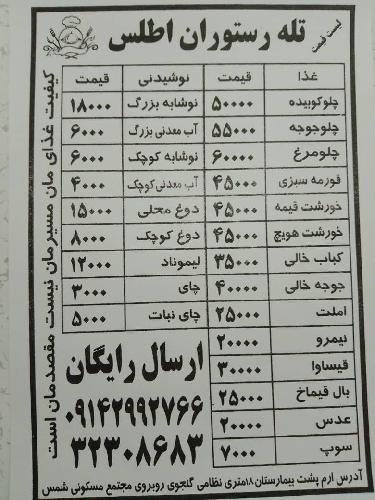 لیست قیمت
تله رستوران اطلس
غذا قیمت نوشیدنی قیمت
چلوکوبیده ۵۰۰۰۰ نوشابه بزرگ ۱۸۰۰۰
چلوجوجه ۵۵۰۰۰ آب معدنی بزرگ ۶۰۰۰
چلومرغ ۶۰۰۰۰ نوشابه کوچک ۶۰۰۰
قورمه سبزی ۴۵۰۰۰ آب معدنی کوچک ۴۰۰۰
خورشت قیمه ۴۵۰۰۰ دوغ محلی ۱۵۰۰۰
خورشت هویج ۴۵۰۰۰ دوغ کوچک ۸۰۰۰
کباب خالی ۳۵۰۰۰ لیموناد ۱۲۰۰۰
جوجه خالی ۴۰۰۰۰ چای ۳۰۰۰
املت ۲۵۰۰۰ چای نبات ۵۰۰۰
نیمرو ۲۰۰۰۰
قیساوا ۳۰۰۰۰
بال قیماخ ۲۵۰۰۰
عدس ۲۰۰۰۰
سوپ ۷۰۰۰
ارسال رایگان
۰۹۱۴۲۹۹۲۷۶۶
۳۲۳۰۸۶۸۳
کیفیت غذای مان مسیرمان نیست مقصدمان است
آدرس ارم پشت بیمارستان ۱۸متری نظامی گنجوی روبروی مجتمع مسکونی شمس